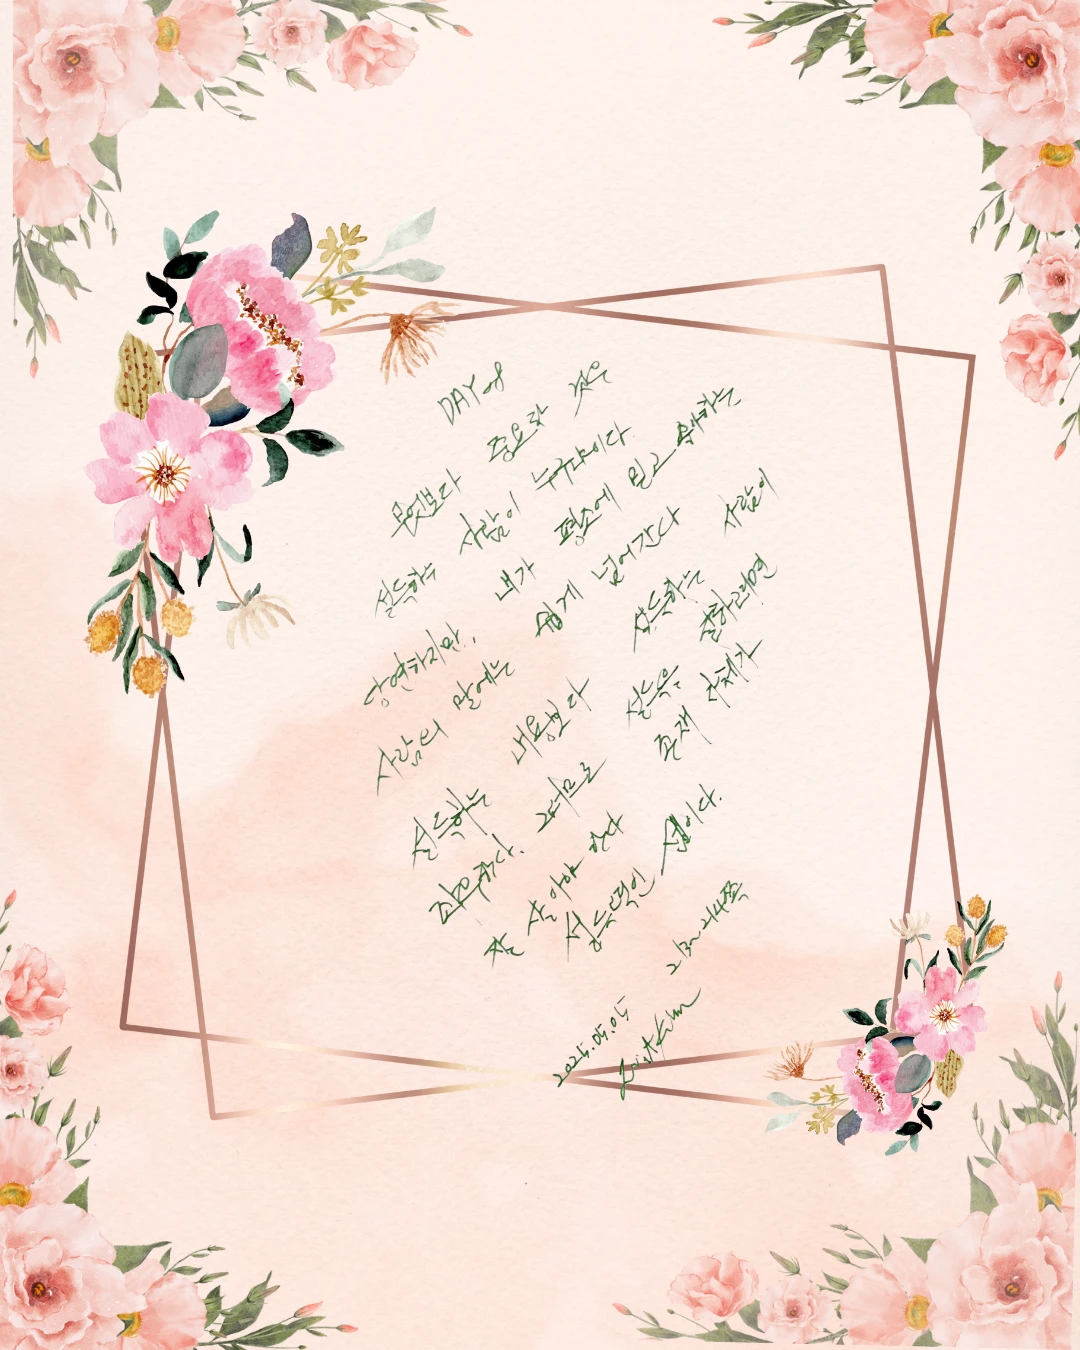 DAY 08
무엇보다 중요한 것은
설득하는 사람이 누구냐이다.
당연하지만, 내가 평소에 믿고 좋아하는
사람의 말에는 쉽게 넘어간다
설득하는 내용보다 설득하는 사람이
좌우한다. 그러므로 설득을 잘하려면
잘 살아야 한다 존재 자체가
설득적인 셈이다.
213~214쪽